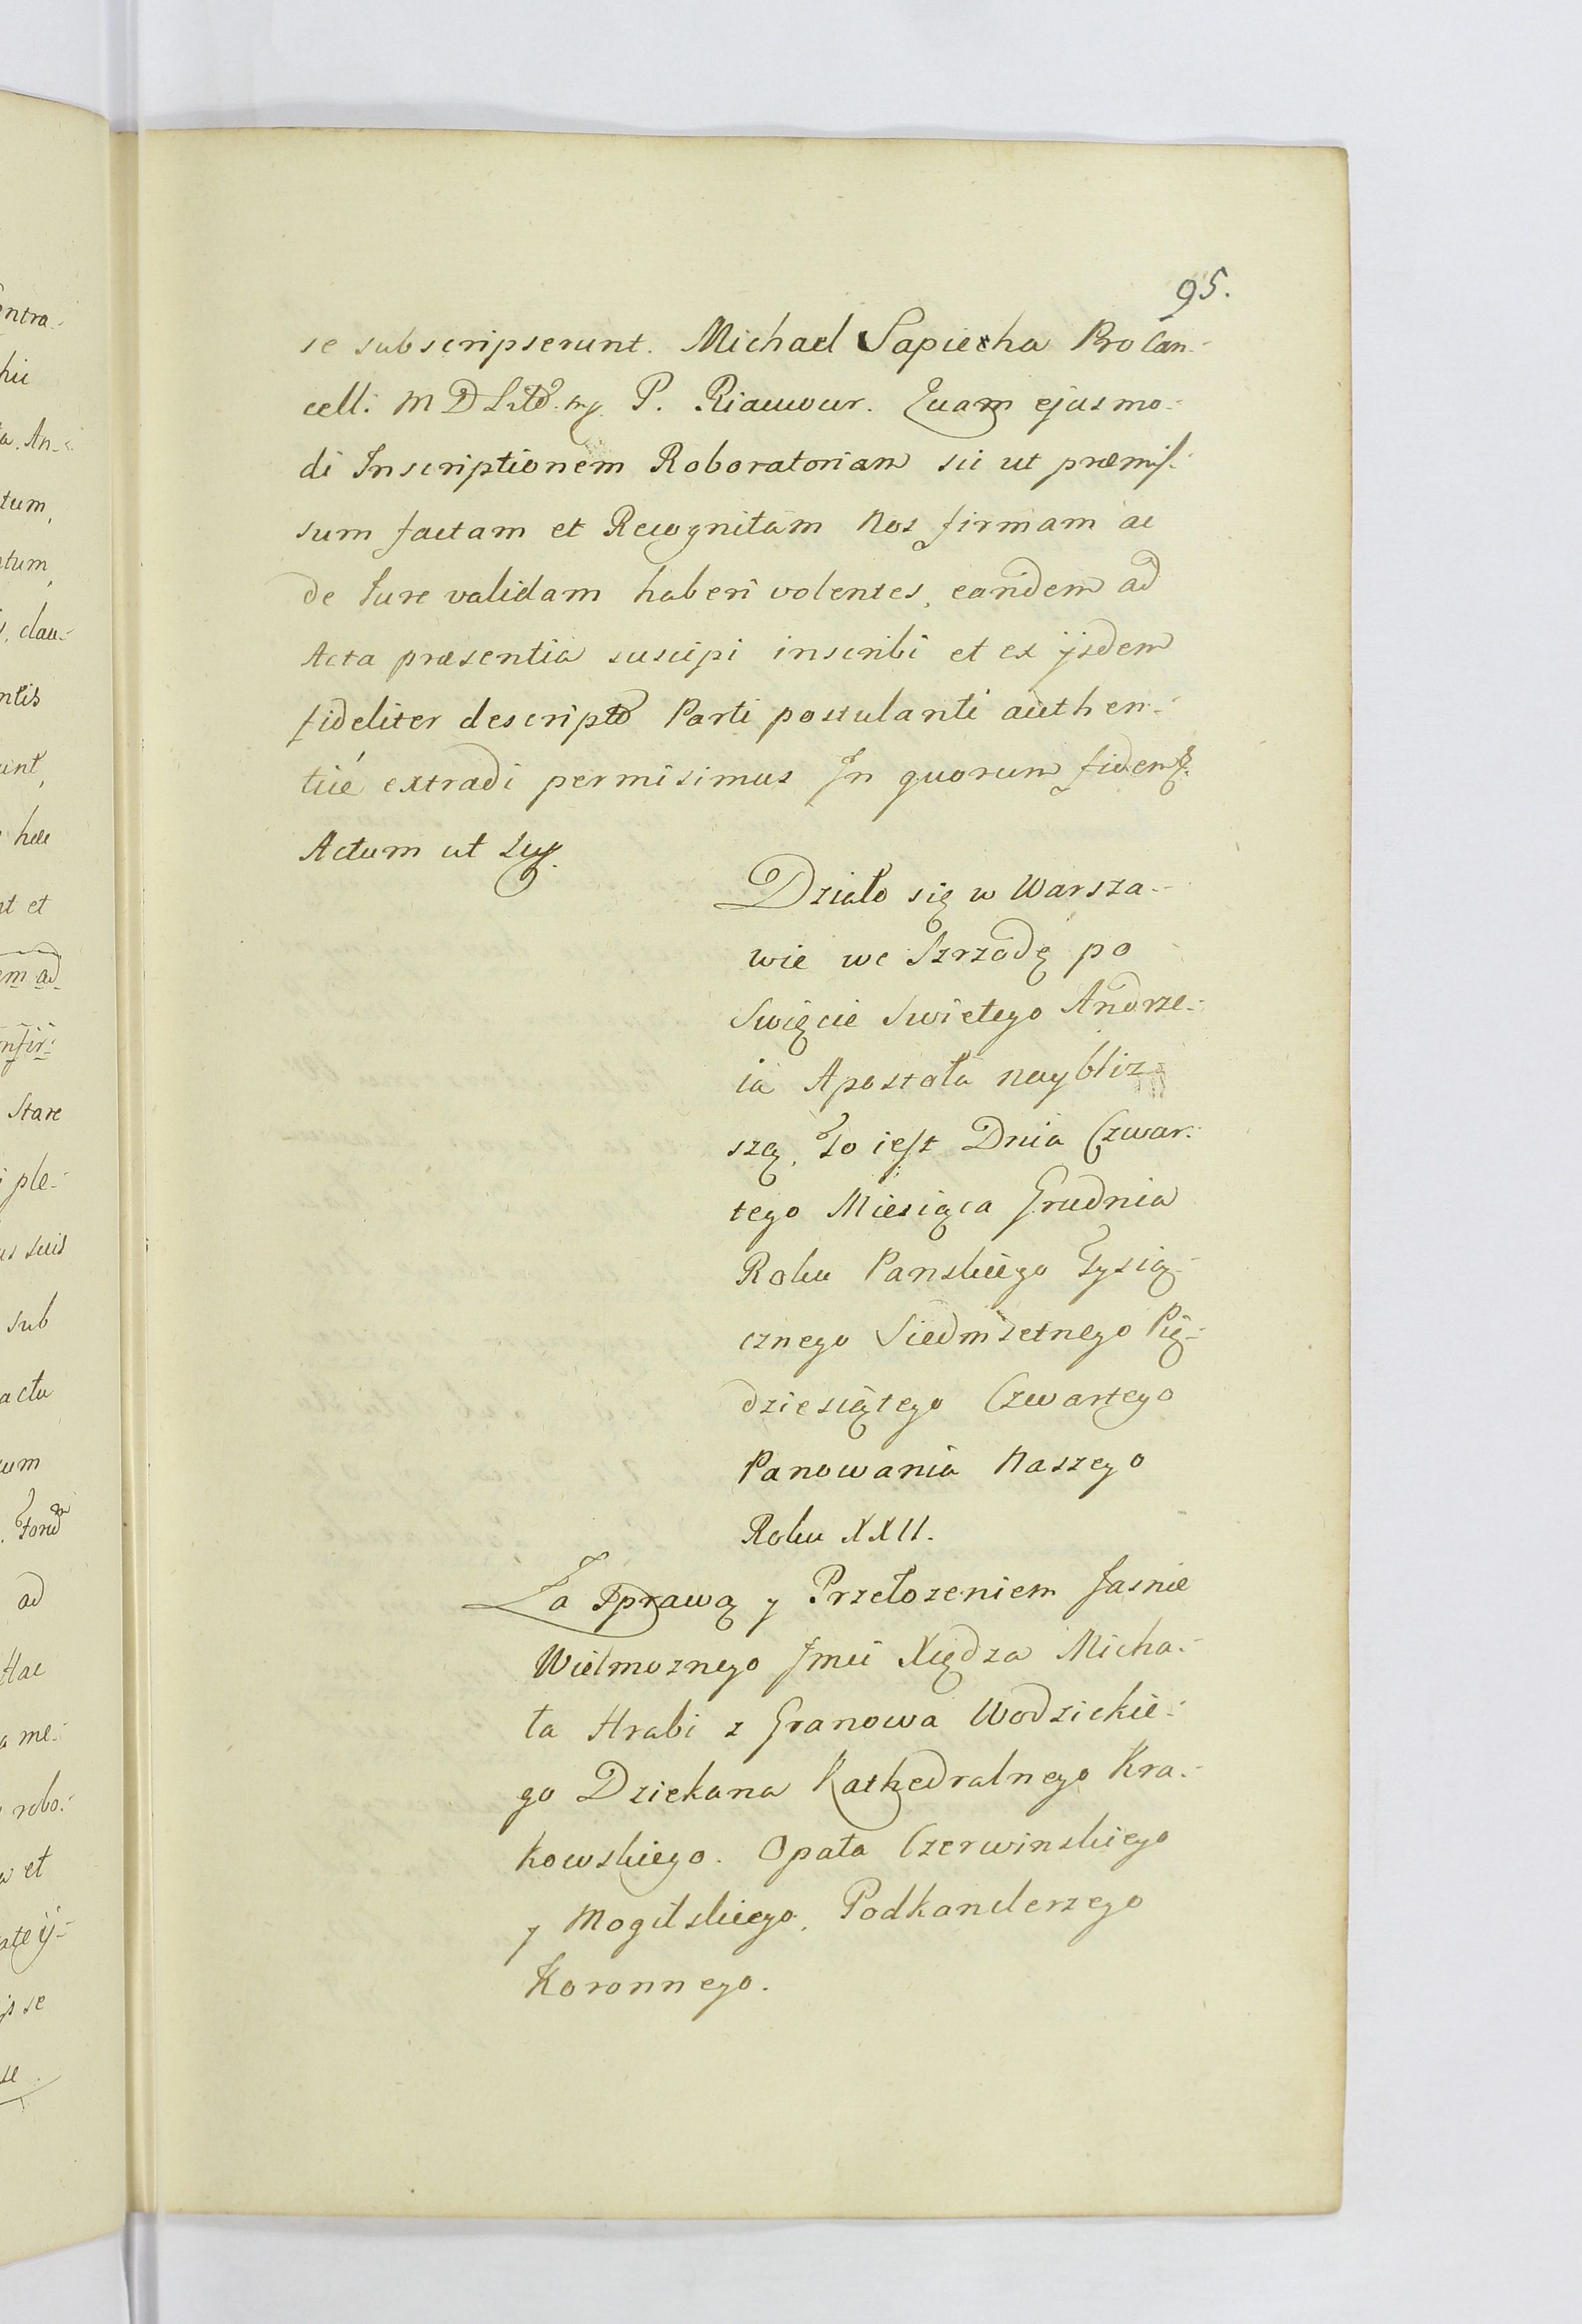 95.
se subscripserunt. Michael Sapiecha ProCan-
cell: M D Litt mp. P. Riaucour. Quam ejusmo-
di Inscriptionem Roboratoriam sic ut præmis-
sum factam et Recognitam Nos firmam ac
de Jure validam haberi volentes, eandem ad
Acta præsentia suscipi inscribi et ex ijsdem
fideliter descripto Parti postulanti authen-
ticé extradi permisimus In quorum fidem &.
Actum ut Sup.
Działo się w Warsza-
wie we Szrzodę po
Swięcie Swietego Andrze-
ia Apostoła naybliz
szą, To iest Dnia Czwar-
tego Miesiąca Grudnia
Roku Panskiego Tysią-
cznego Siedmsetnego Pię-
dziesiątego Czwartego
Panowania Naszego
Roku XXII.
Za Sprawą y Przełozeniem Jasnie
Wielmoznego Jmci Xiędza Micha-
ła Hrabi z Granowa Wodzickie-
go Dziekana Kathedralnego Kra-
kowskiego. Opata Czerwinskiego
y Mogilskiego, Podkanclerzego
Koronnego.